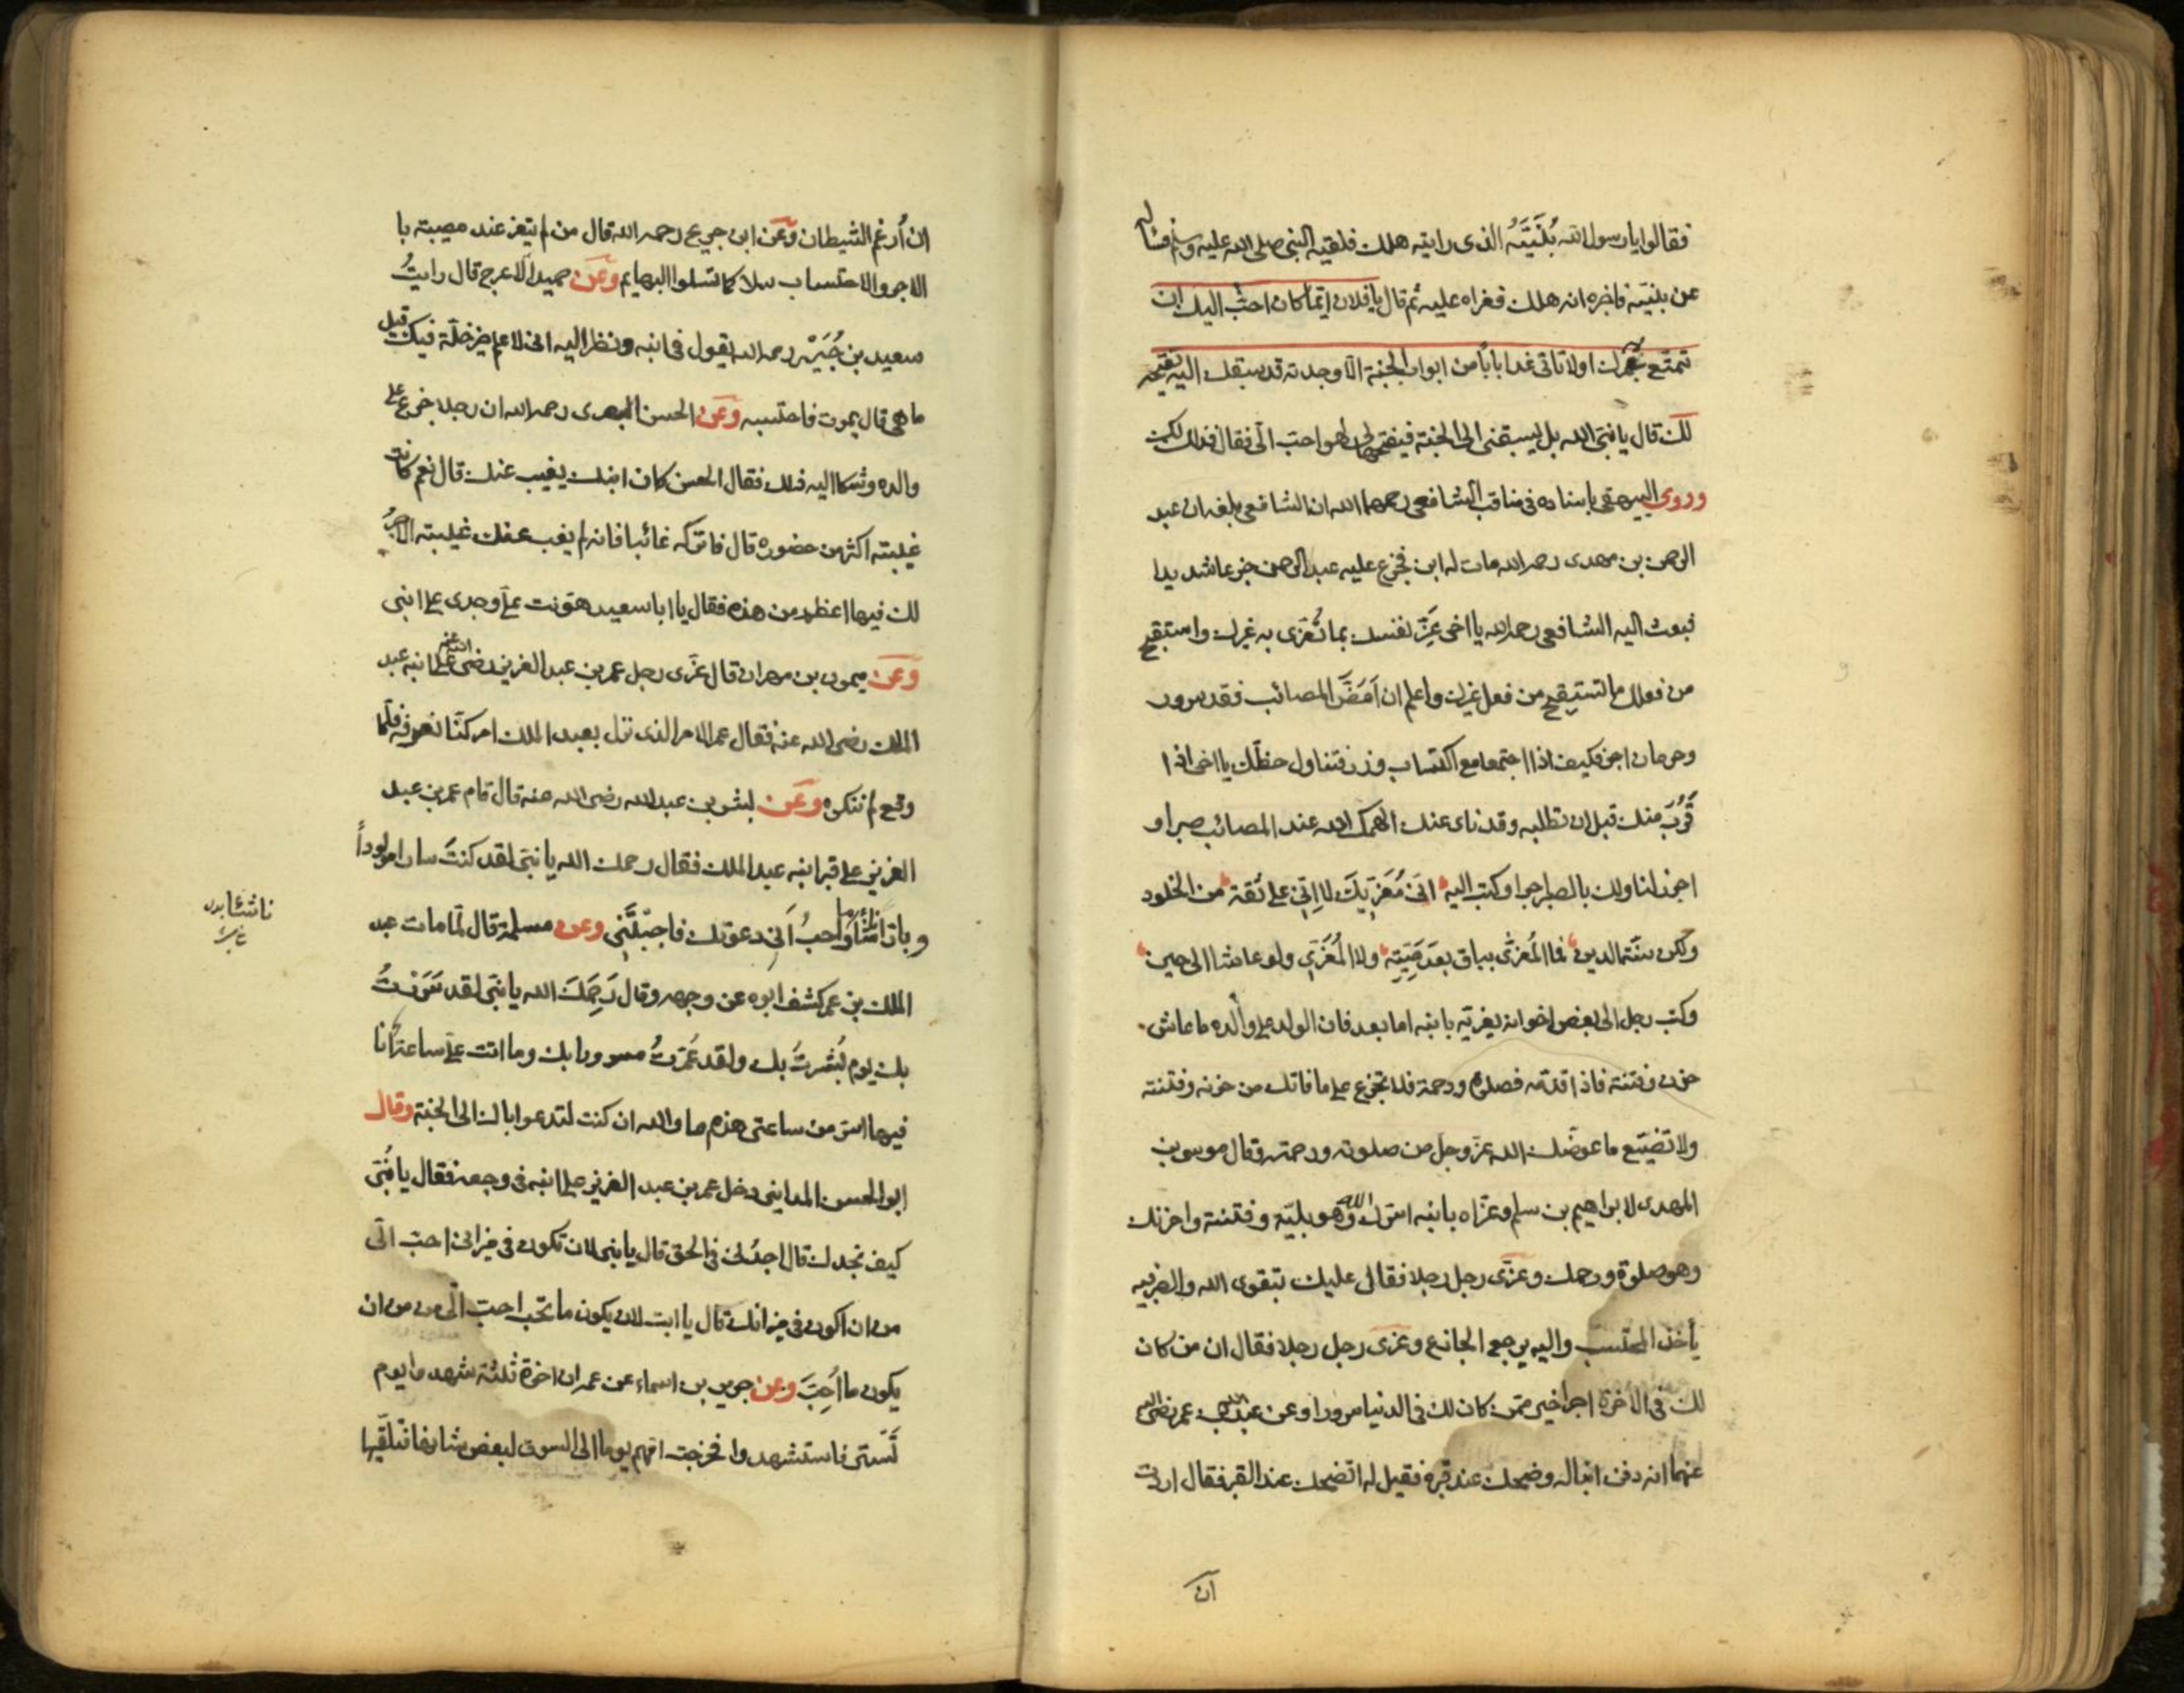 فقالوا يا رسول الله بُنَيَّهُ الذى رايته هلك فلقيه النبى صلى الله عليه وسلم فساله
عن بنيّه فاخبره انه هلك فعزاه عليه ثم قال يا فلان ايّما كان احبّ اليك ان
تمتّع به عمرك اولا تاتى غدا باباً من ابواب الجنة الّا وجدته قد سبقك اليه يفتحه
لك قال يا نبىّ الله بل يسبقنى الى الجنة فيفتحها لى لهو احبّ الىّ فقال فذلك لك
وروى البيهقى باسناده فى مناقب الشافعى رحمهما الله ان الشافعى بلغه ان عبد
الرحمن بن مهدى رحمه الله مات له ابن فجزع عليه عبد الرحمن جزعا شديدا
فبعث اليه الشافعى رحمه الله يا اخى عَزِّ نفسك بما تُعَزّى به غيرك واستقبح
من فعلك ما تستقبح من فعل غيرك واعلم ان اَمَضَّ المصائب فقد سرور
وحرمان اجر فكيف اذا اجتمعا مع اكتساب وزر فتناول حظّك يا اخى اذا
قَرُبَ منك قبل ان تطلبه وقد ناى عنك الهمك الله عند المصائب صبرا و
احرز لنا ولك بالصبر اجرا وكتب اليه انّى مُعَزّيكَ لا اِنّى على ثقة من الخلود
ولكن سنّة الدين فما المُعَزّى بباق بعد مَيِّتِه ولا المُعَزِّى ولو عاشا الى حين
وكتب رجل الى بعض اخوانه يعزيه بابنه اما بعد فان الولد على والده ما عاش
حزن وفتنة فاذا قدّمه فصلوة ورحمة فلا تجزع على ما فاتك من حزنه وفتنته
ولا تضيّع ما عوضك الله عزّ وجل من صلوته ورحمته وقال موسى بن
المهدى لابراهيم بن سلم وعزاه بابنه اسرّك الله وهو بليّة وفتنة واحزنك
وهو صلوة ورحمة وعزّى رجل رجلا فقال عليك بتقوى الله والصبر فبه
يأخذ المحتسب واليه يرجع الجازع وعزى رجل رجلا فقال ان من كان
لك فى الاخرة اجرا خير ممّن كان لك فى الدنيا سرورا وعن عبد الله بن عمر رضى الله
عنهما انه دفن ابنا له وضحك عند قبره فقيل له اتضحك عند القبر فقال اردت
ان
ان اُرغم الشيطان وعن ابن جريج رحمه الله قال من لم يتعز عند مصيبته با
الاجر والاحتساب سلا كما تسلوا البهايم وعن حميد الاعرج قال رايتُ
سعيد بن جُبَيْر رحمه الله يقول فى ابنه ونظر اليه انى لاعلم خير خلّة فيك قيل
ما هى قال يموت فاحتسبه وعن الحسن البصرى رحمه الله ان رجلا جزع على
والده وشكا اليه ذلك فقال الحسن كان ابنك يغيب عنك قال نعم كانت
غيبته اكثر من حضوره قال فاتركه غائبا فانه لم يغب عنك غيبته الاجرُ
لك فيها اعظم من هذه فقال يا ابا سعيد هوّنت علىّ وجدى على ابنى
وعن ميمون بن مهران قال عزّى رجل عمر بن عبد العزيز رضى الله عنه على ابنه عبد
الملك رضى الله عنه فقال عمر الامر الذى نزل بعبد الملك امر كنّا نعرفه فلمّا
وقع لم ننكره وعن بشر بن عبد الله رضى الله عنه قال قام عمر بن عبد
العزيز على قبر ابنه عبد الملك فقال رحمك الله يا بنىّ لقد كنتَ سارا مولوداً
وبارا ناشئا وما احبُّ اَنى دعوتك فاجبتَنى وعن مسلمة قال لمّا مات عبد
الملك بن عمر كشف ابوه عن وجهه وقال رَحِمَكَ الله يا بنىّ لقد سَرَرْتُ
بك يوم بُشّرتُ بك ولقد عَمَرتُ مسرورا بك وما اتت علىّ ساعة انا
فيها اسرّ من ساعتى هذه اما والله ان كنت لتدعوا اباك الى الجنة وقال
ابو الحسن المداينى دخل عمر بن عبد العزيز على ابنه فى وجعه فقال يا بُنَىّ
كيف تجدك قال اجدُنى فى الحق قال يا بنى لان تكون فى ميزانى احبّ الىّ
من ان اكون فى ميزانك قال يا ابت لان يكون ما تحب احبّ الىّ من ان
يكون ما اُحِبّ وعن جويرية بن اسماء عن عمه ان اخوة ثلثة شهدوا يوم
تُسْتر فاستشهدوا فخرجت امّهم يوما الى السوق لبعض شانها فتلقّيها
ناشئا